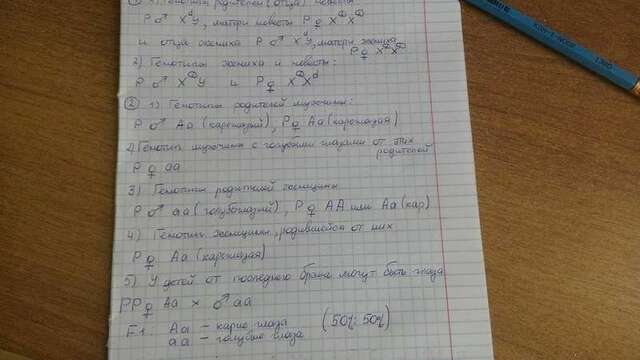 1) Генотипы родителей (отца) невесты
P ♂ XᵈY, матери невесты P ♀ XᴰXᴰ
и отца жениха P ♂ XᵈY, матери жениха
P ♀ XᴰXᴰ
2) Генотипы жениха и невесты:
P ♂ XᴰY и P ♀ XᴰXᵈ
② 1) Генотипы родителей мужчины:
P ♂ Aa (кареглазый), P ♀ Aa (кареглазая)
2) Генотип мужчины с голубыми глазами от этих
родителей
P ♀ aa
3) Генотипы родителей женщины
P ♂ aa (голубоглазый), P ♀ AA или Aa (кар)
4) Генотип женщины, родившейся от них
P ♀ Aa (кареглазая)
5) У детей от последнего брака могут быть глаза
PP ♀ Aa × ♂ aa
F1 Aa – карие глаза (50%:50%)
aa – голубые глаза